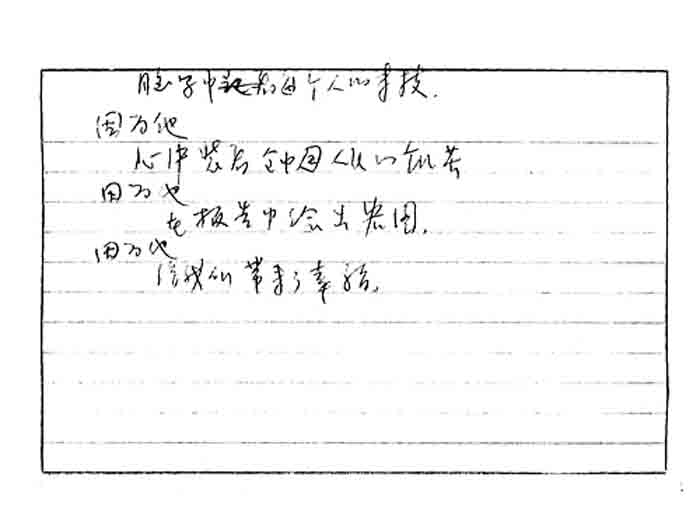 脑子中记着每个人的来枝.
因为他
心中装着全中国人民的饥苦
因为他
在报告中绘出宏图.
因为他
给我们带来了幸福.